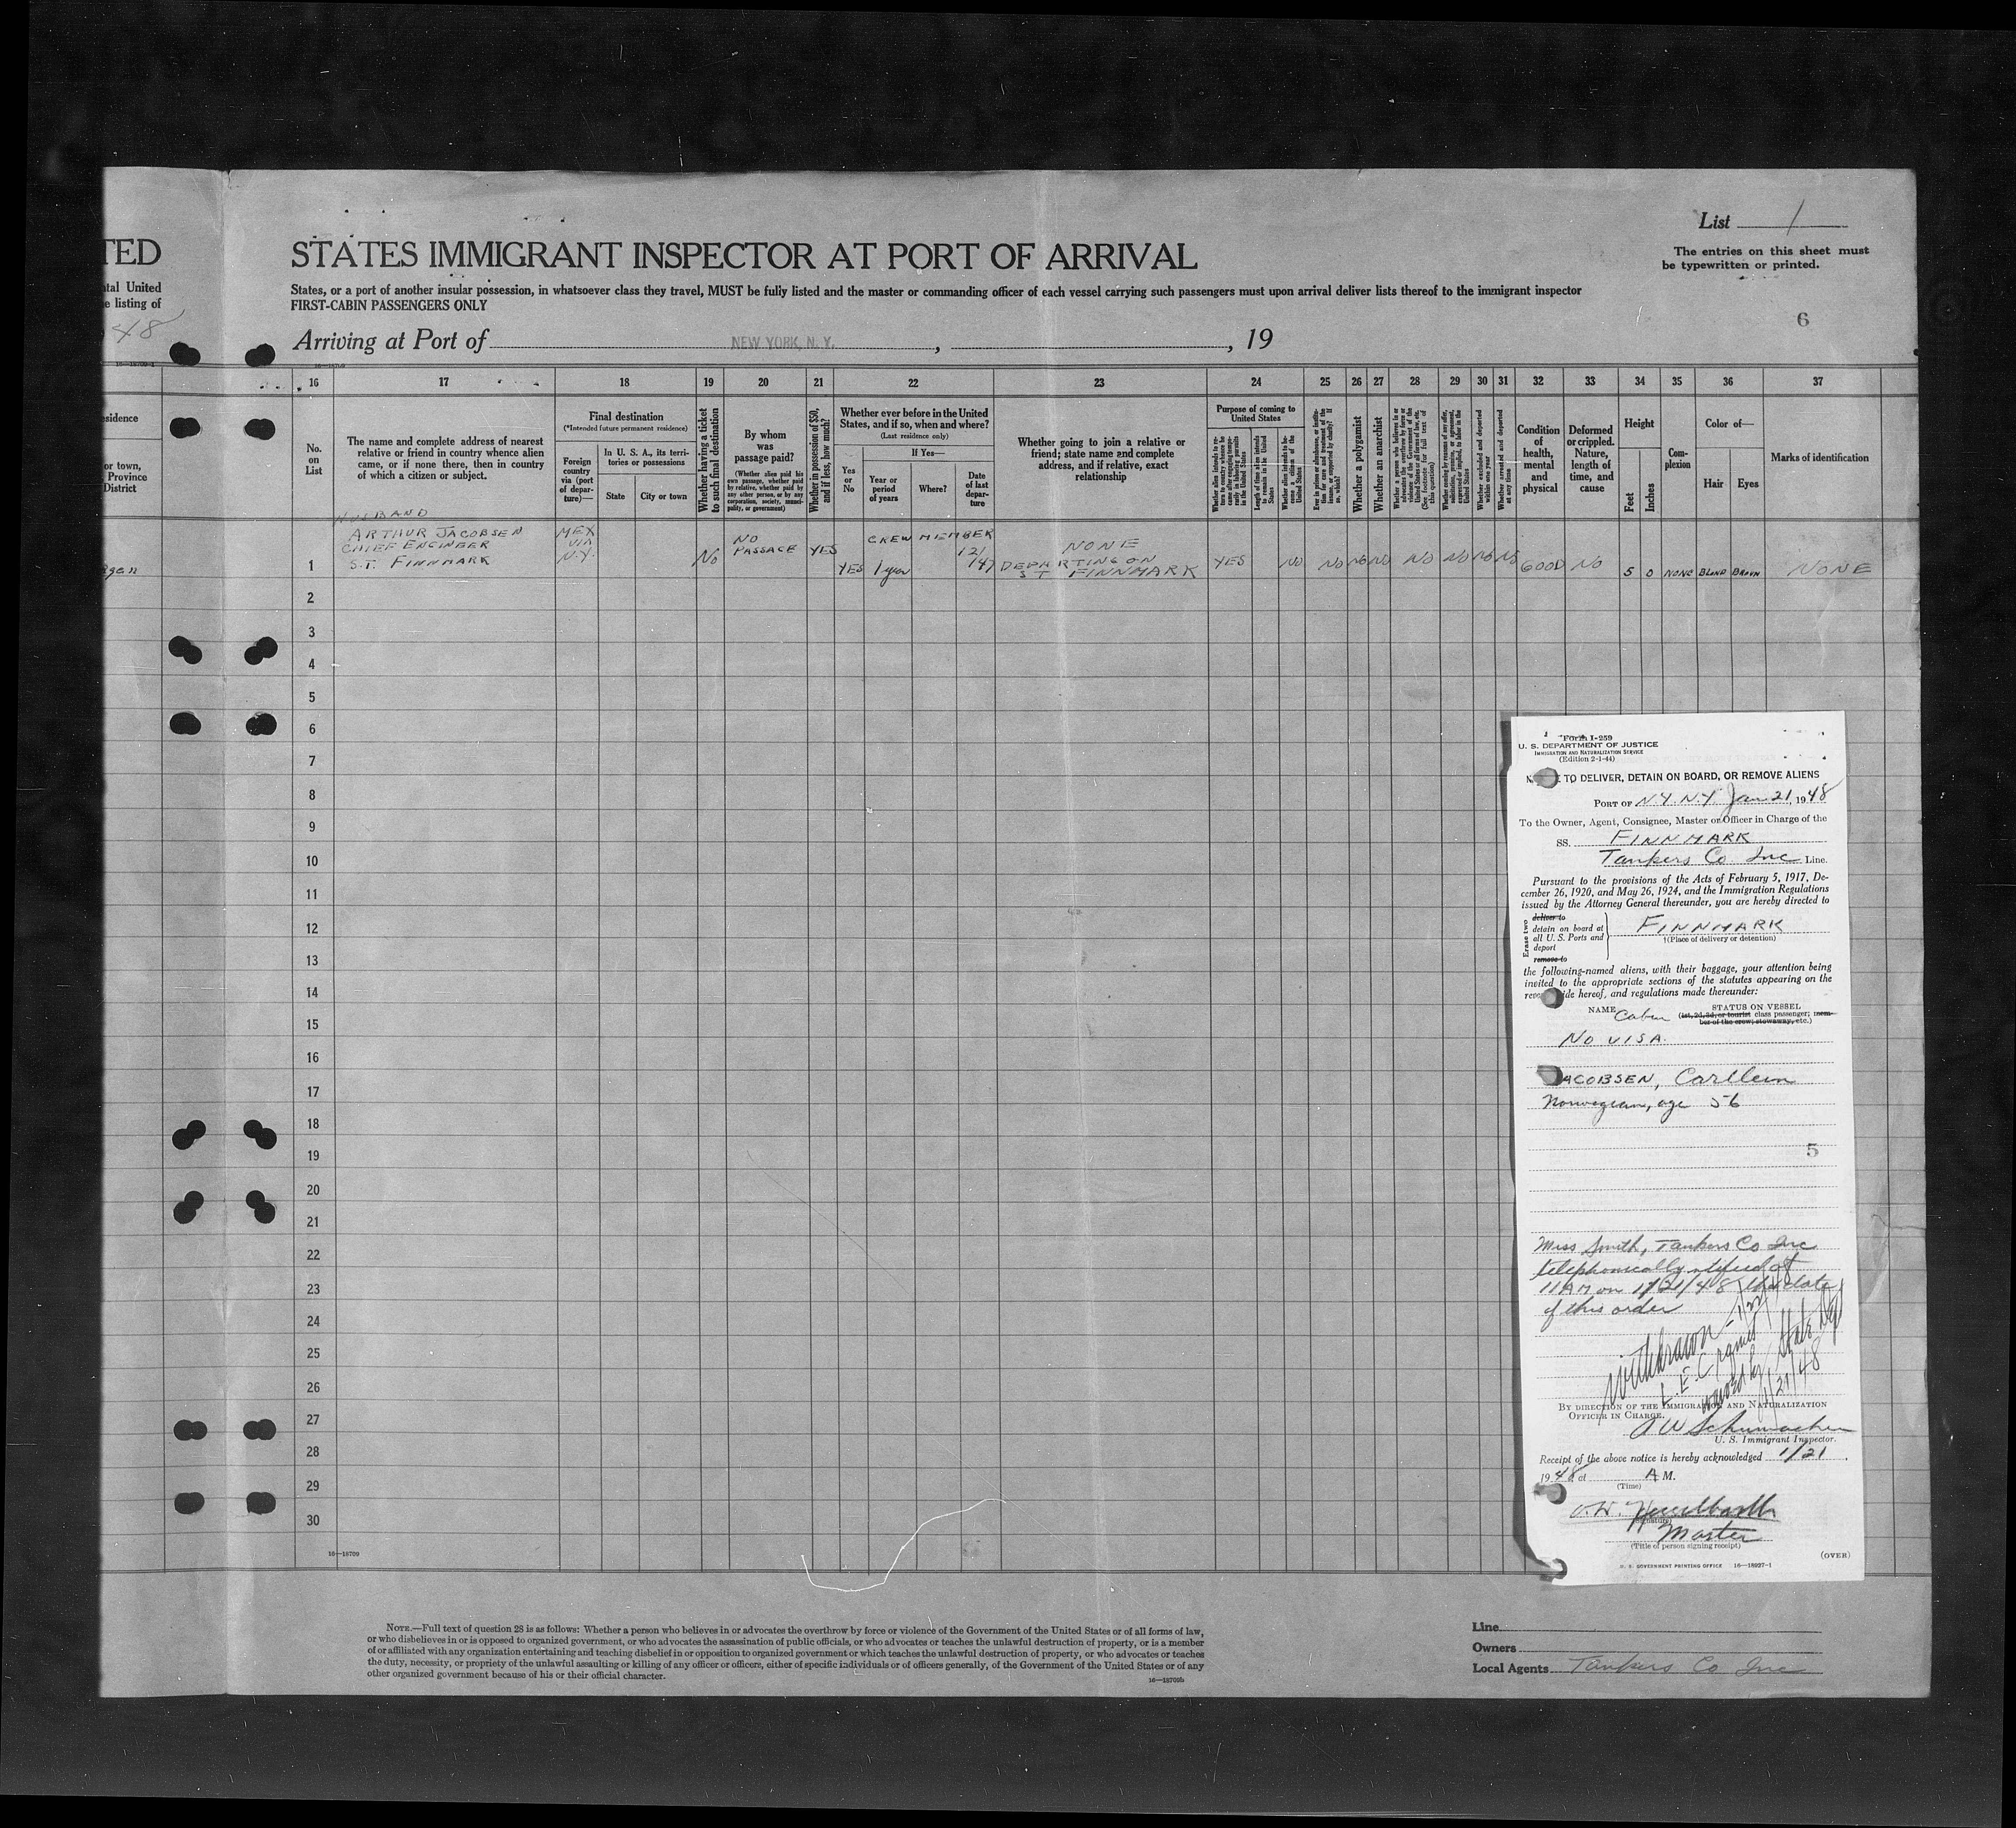 List 1
The entries on this sheet must
be typewritten or printed.
6
TED
STATES IMMIGRANT INSPECTOR AT PORT OF ARRIVAL
ntal United
e listing of
48
States, or a port of another insular possession, in whatsoever class they travel, MUST be fully listed and the master or commanding officer of each vessel carrying such passengers must upon arrival deliver lists thereof to the immigrant inspector
FIRST-CABIN PASSENGERS ONLY
Arriving at Port of NEW YORK, N. Y. , , 19
16 17 18 19 20 21 22 23 24 25 26 27 28 29 30 31 32 33 34 35 36 37
sidence
or town,
Province
District
No.
on
List
The name and complete address of nearest
relative or friend in country whence alien
came, or if none there, then in country
of which a citizen or subject.
Final destination
(*Intended future permanent residence)
Foreign
country
via (port
of depar-
ture)—
In U. S. A., its terri-
tories or possessions
State
City or town
Whether having a ticket
to such final destination
By whom
was
passage paid?
(Whether alien paid his
own passage, whether paid
by relative, whether paid by
any other person, or by any
corporation, society, munici-
pality, or government)
Whether in possession of $50,
and if less, how much?
Whether ever before in the United
States, and if so, when and where?
(Last residence only)
Yes
or
No
If Yes—
Year or
period
of years
Where?
Date
of last
depar-
ture
Whether going to join a relative or
friend; state name and complete
address, and if relative, exact
relationship
Purpose of coming to
United States
Length of time alien intends
to remain in the United
States
Whether alien intends to be-
come a citizen of the
United States
Whether a polygamist
Whether an anarchist
Condition
of
health,
mental
and
physical
Deformed
or crippled.
Nature,
length of
time, and
cause
Height
Feet
Inches
Com-
plexion
Color of—
Hair
Eyes
Marks of identification
HUSBAND
ARTHUR JACOBSEN
CHIEF ENGINEER
S.T. FINNMARK
MEX
VIA
N.Y.
No
NO
PASSAGE
YES
CREW MEMBER
YES
1 year
121
/47
NONE
DEPARTING ON
ST FINNMARK
YES
NO
NO
NO
NO
NO
NO
NO
NO
GOOD
NO
5
0
NONE
BLOND
BROWN
NONE
1
2
3
4
5
6
7
8
9
10
11
12
13
14
15
16
17
18
19
20
21
22
23
24
25
26
27
28
29
30
16—18709
Form I-259
U. S. DEPARTMENT OF JUSTICE
IMMIGRATION AND NATURALIZATION SERVICE
(Edition 2-1-44)
TO DELIVER, DETAIN ON BOARD, OR REMOVE ALIENS
PORT OF N.Y. N.Y. Jan 21, 1948
To the Owner, Agent, Consignee, Master or Officer in Charge of the
SS. FINNMARK
Tankers Co Inc Line.
Pursuant to the provisions of the Acts of February 5, 1917, De-
cember 26, 1920, and May 26, 1924, and the Immigration Regulations
issued by the Attorney General thereunder, you are hereby directed to
Erase two
deliver to
detain on board at
all U. S. Ports and
deport
remove to
FINNMARK
†(Place of delivery or detention)
the following-named aliens, with their baggage, your attention being
invited to the appropriate sections of the statutes appearing on the
ide hereof, and regulations made thereunder:
NAME
STATUS ON VESSEL
Cabin
(1st, 2d, 3d, or tourist class passenger; mem-
ber of the crew; stowaway, etc.)
No VISA.
ACOBSEN, Carlleen
Norwegian, age 56
5
Miss Smith, Tankers Co Inc
telephonically notified at
11 AM on 1/21/48
of this order
withdrawn
waived by State Dept
1/21/48
BY DIRECTION OF THE IMMIGRATION AND NATURALIZATION
OFFICER IN CHARGE.
A W Schumacher
U. S. Immigrant Inspector.
Receipt of the above notice is hereby acknowledged 1/21
1948, at A M.
(Time)
Master
(Title of person signing receipt)
U. S. GOVERNMENT PRINTING OFFICE 16—18927-1
(OVER)
NOTE.—Full text of question 28 is as follows: Whether a person who believes in or advocates the overthrow by force or violence of the Government of the United States or of all forms of law,
or who disbelieves in or is opposed to organized government, or who advocates the assassination of public officials, or who advocates or teaches the unlawful destruction of property, or is a member
of or affiliated with any organization entertaining and teaching disbelief in or opposition to organized government or which teaches the unlawful destruction of property, or who advocates or teaches
the duty, necessity, or propriety of the unlawful assaulting or killing of any officer or officers, either of specific individuals or of officers generally, of the Government of the United States or of any
other organized government because of his or their official character.
16—18709b
Line
Owners
Local Agents Tankers Co Inc